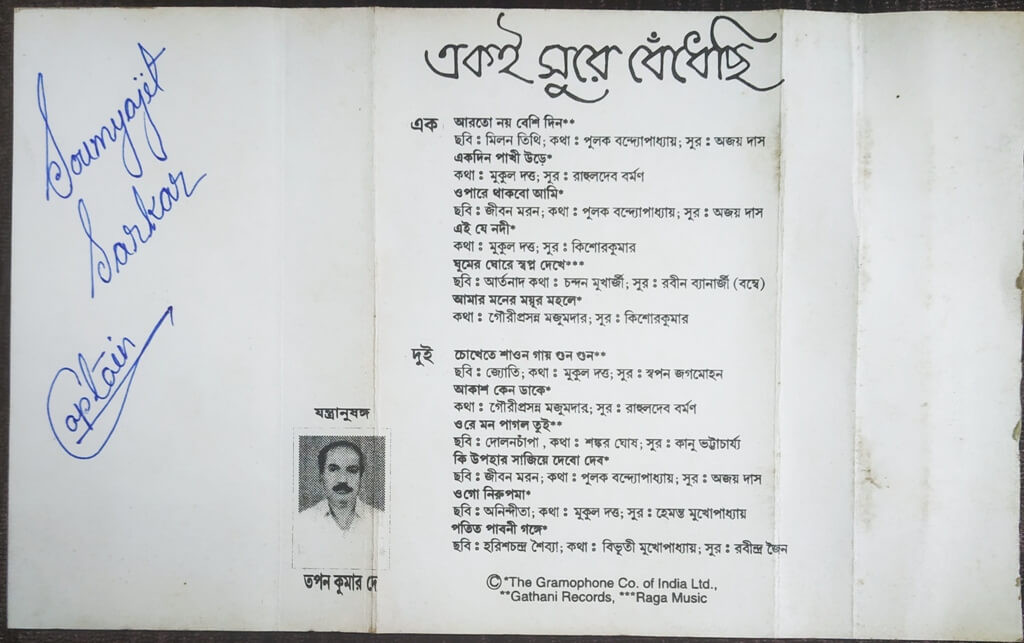 Soumyajet
Sarkar
Captain
একই সুরে বেঁধেছি
এক
আরতো নয় বেশি দিন**
ছবি : মিলন তিথি; কথা : পুলক বন্দ্যোপাধ্যায়; সুর : অজয় দাস
একদিন পাখী উড়ে*
কথা : মুকুল দত্ত; সুর : রাহুলদেব বর্মণ
ওপারে থাকবো আমি*
ছবি : জীবন মরন; কথা : পুলক বন্দ্যোপাধ্যায়; সুর : অজয় দাস
এই যে নদী*
কথা : মুকুল দত্ত; সুর : কিশোরকুমার
ঘুমের ঘোরে স্বপ্ন দেখে***
ছবি : আর্তনাদ কথা : চন্দন মুখার্জী; সুর : রবীন ব্যানার্জী (বম্বে)
আমার মনের ময়ূর মহলে*
কথা : গৌরীপ্রসন্ন মজুমদার; সুর : কিশোরকুমার
দুই
চোখেতে শাওন গায় গুন গুন**
ছবি : জ্যোতি; কথা : মুকুল দত্ত; সুর : স্বপন জগমোহন
আকাশ কেন ডাকে*
কথা : গৌরীপ্রসন্ন মজুমদার; সুর : রাহুলদেব বর্মণ
ওরে মন পাগল তুই**
ছবি : দোলনচাঁপা, কথা : শঙ্কর ঘোষ; সুর : কানু ভট্টাচার্য্য
কি উপহার সাজিয়ে দেবো দেব*
ছবি : জীবন মরন; কথা : পুলক বন্দ্যোপাধ্যায়; সুর : অজয় দাস
ওগো নিরুপমা*
ছবি : অনিন্দীতা; কথা : মুকুল দত্ত; সুর : হেমন্ত মুখোপাধ্যায়
পতিত পাবনী গঙ্গে*
ছবি : হরিশচন্দ্র শৈব্যা; কথা : বিভূতী মুখোপাধ্যায়; সুর : রবীন্দ্র জৈন
যন্ত্রানুষঙ্গ
তপন কুমার দে
©*The Gramophone Co. of India Ltd.,
**Gathani Records, ***Raga Music